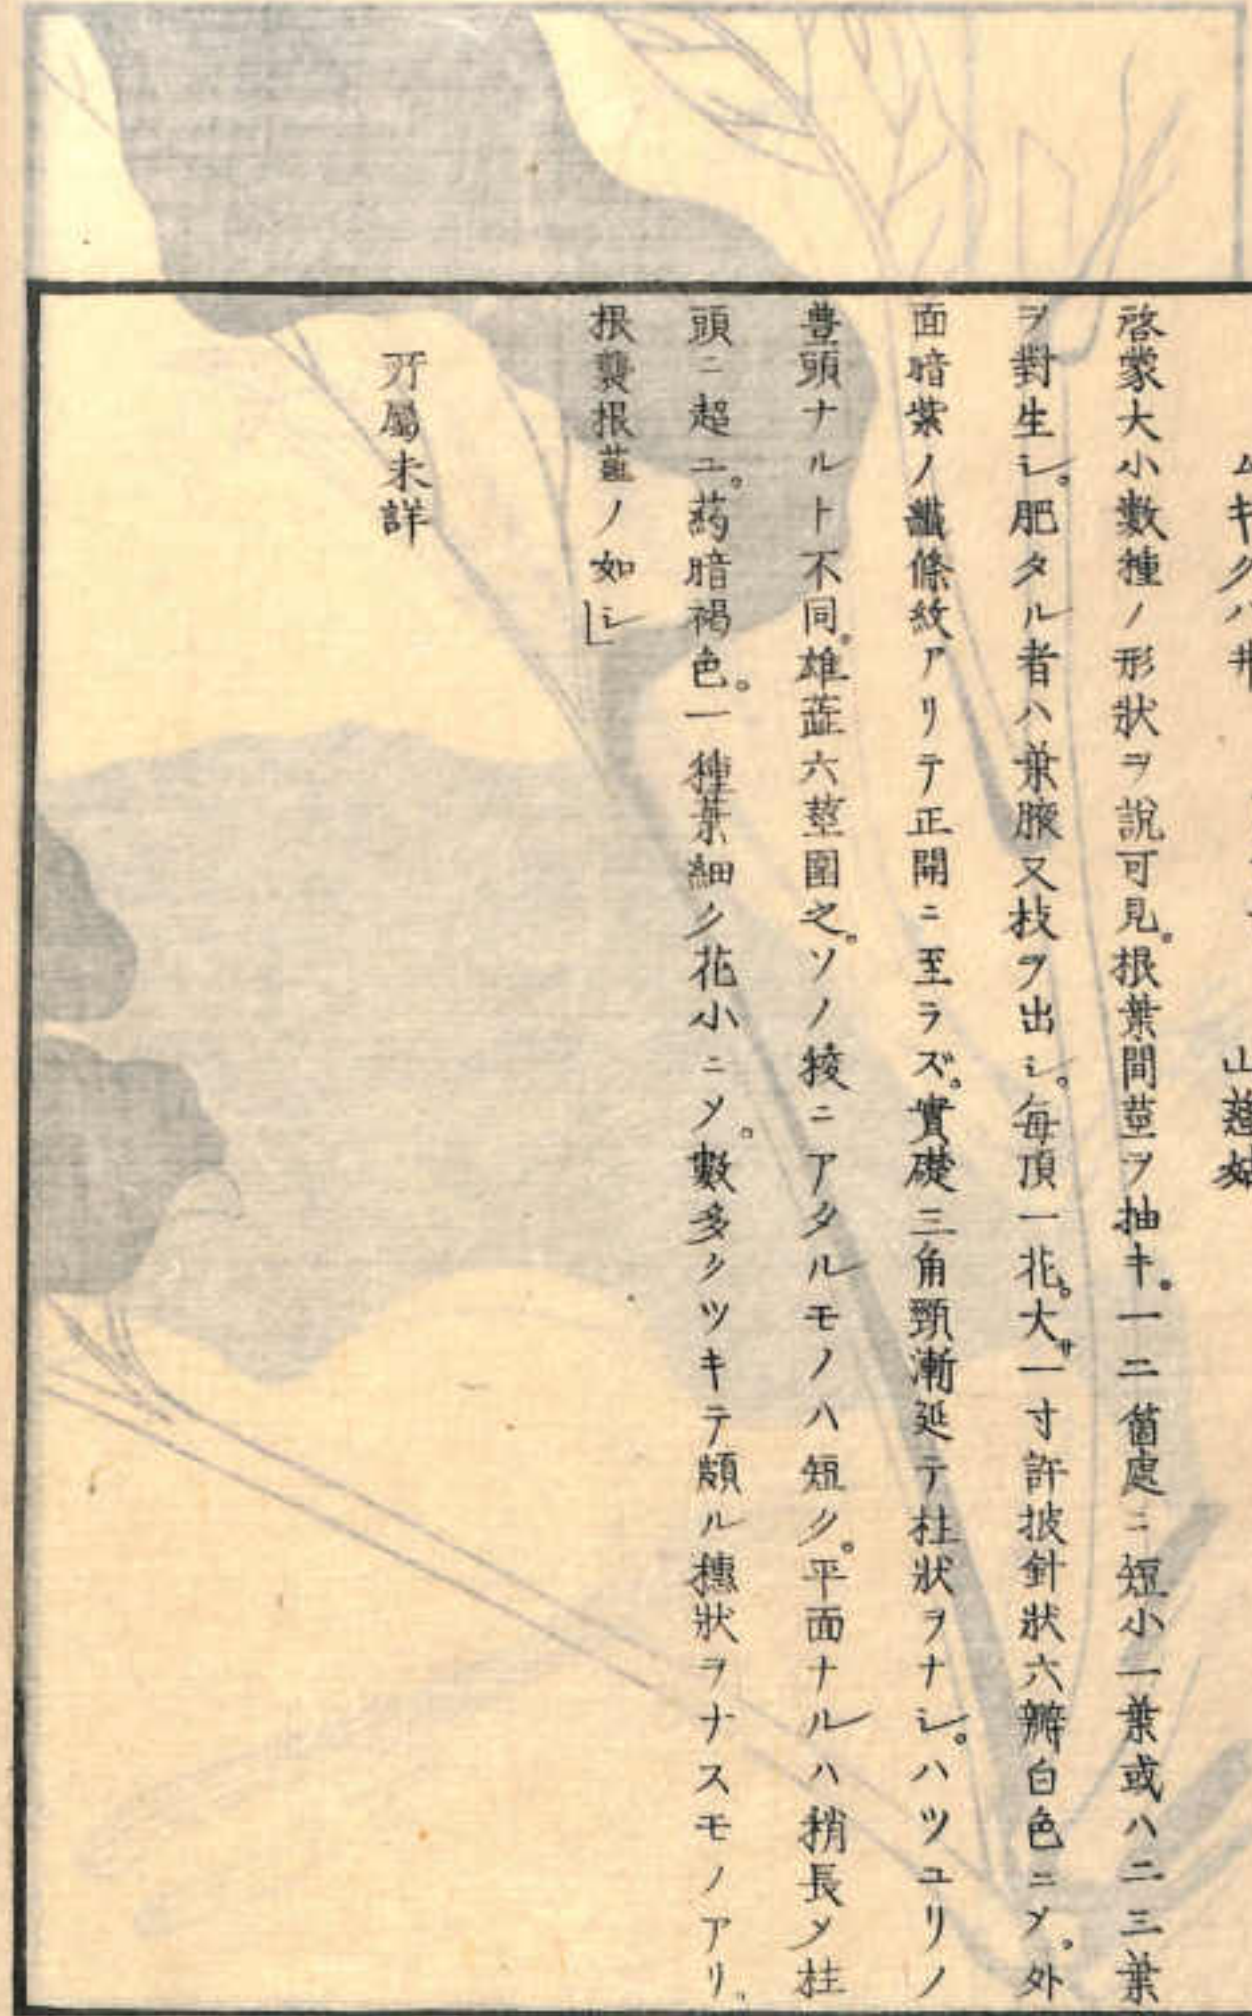 山慈姑
啓蒙大小數種ノ形狀ヲ說可見。根葉間莖ヲ抽キ。一二箇處ニ短小一葉或ハ二三葉
ヲ對生シ。肥タル者ハ葉腋又枝ヲ出シ。每頂一花。大サ一寸許披針狀六瓣白色ニ〆。外
面暗紫ノ纖條紋アリテ正開ニ至ラズ。實礎三角頸漸延テ柱狀ヲナシ。ハツユリノ
豊頭ナルト不同。雄蕋六莖圍之。ソノ稜ニアタルモノハ短ク。平面ナルハ稍長〆柱
頭ニ超ユ。葯暗褐色。一種葉細ク花小ニ〆。數多クツキテ頗ル穗狀ヲナスモノアリ。
根襲根韮ノ如シ」
所屬未詳